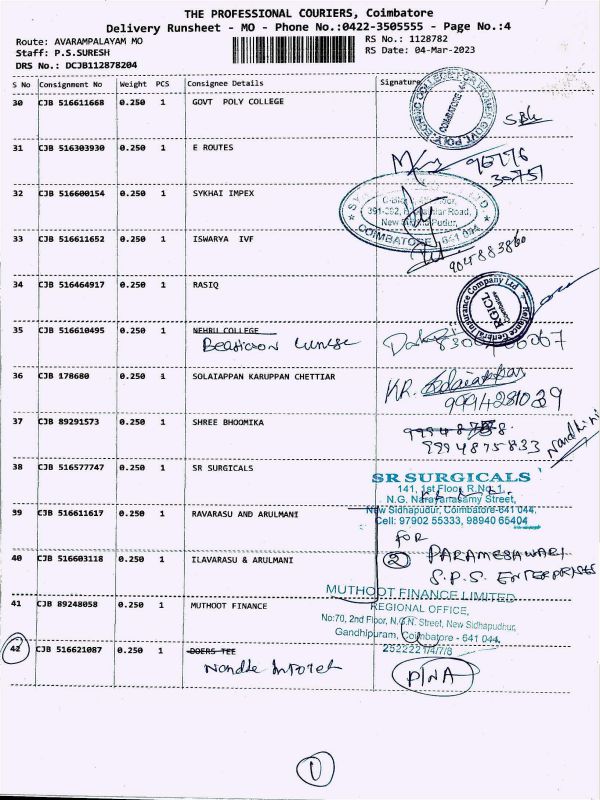 THE PROFESSIONAL COURIERS, Coimbatore
Delivery Runsheet - MO - Phone No.:0422-3505555 - Page No.:4
Route: AVARAMPALAYAM MO
RS No.: 1128782
Staff: P.S.SURESH
RS Date: 04-Mar-2023
DRS No.: DCJB112878204
S No Consignment No Weight PCS Consignee Details Signature
30 CJB 516611668 0.250 1 GOVT POLY COLLEGE
COIMBATORE
31 CJB 516303930 0.250 1 E ROUTES
32 CJB 516600154 0.250 1 SYKHAI IMPEX
391-392,
Road,
COIMBATORE 641 094
33 CJB 516611652 0.250 1 ISWARYA IVF
9048833860
34 CJB 516464917 0.250 1 RASIQ
Reliance General Insurance Company Ltd
RGICL
Coimbatore
35 CJB 516610495 0.250 1 NEHRU COLLEGE
36 CJB 178680 0.250 1 SOLAIAPPAN KARUPPAN CHETTIAR
KR.
9994281029
37 CJB 89291573 0.250 1 SHREE BHOOMIKA
9994875833 Nandhini
38 CJB 516577747 0.250 1 SR SURGICALS
SR SURGICALS
141, 1st Floor, R.No.1,
N.G. Narayanasamy Street,
New Sidhapudur, Coimbatore-641 044.
Cell: 97902 55333, 98940 65404
39 CJB 516611617 0.250 1 RAVARASU AND ARULMANI
FOR
40 CJB 516603118 0.250 1 ILAVARASU & ARULMANI
2 PARAMESHWARI
S.P.S. ENTERPRISES
41 CJB 89248058 0.250 1 MUTHOOT FINANCE
MUTHOOT FINANCE LIMITED
REGIONAL OFFICE,
No:70, 2nd Floor, N.G.N. Street, New Sidhapudhur,
Gandhipuram, Coimbatore - 641 044.
42 CJB 516621087 0.250 1 DOERS TEE
2522221/4/7/8
PINA
1